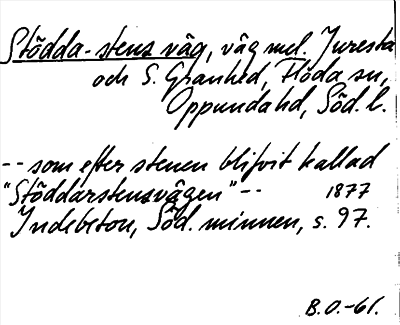 Stödda-stens väg, väg mel. Juresta
och S. Granhed, Flöda sn,
Oppunda hd, Söd. l.
-- som efter stenen blifvit kallad
"Stöddarstensvägen" -- 1877
Indebetou, Söd. minnen, s. 97.
B.O.-61.